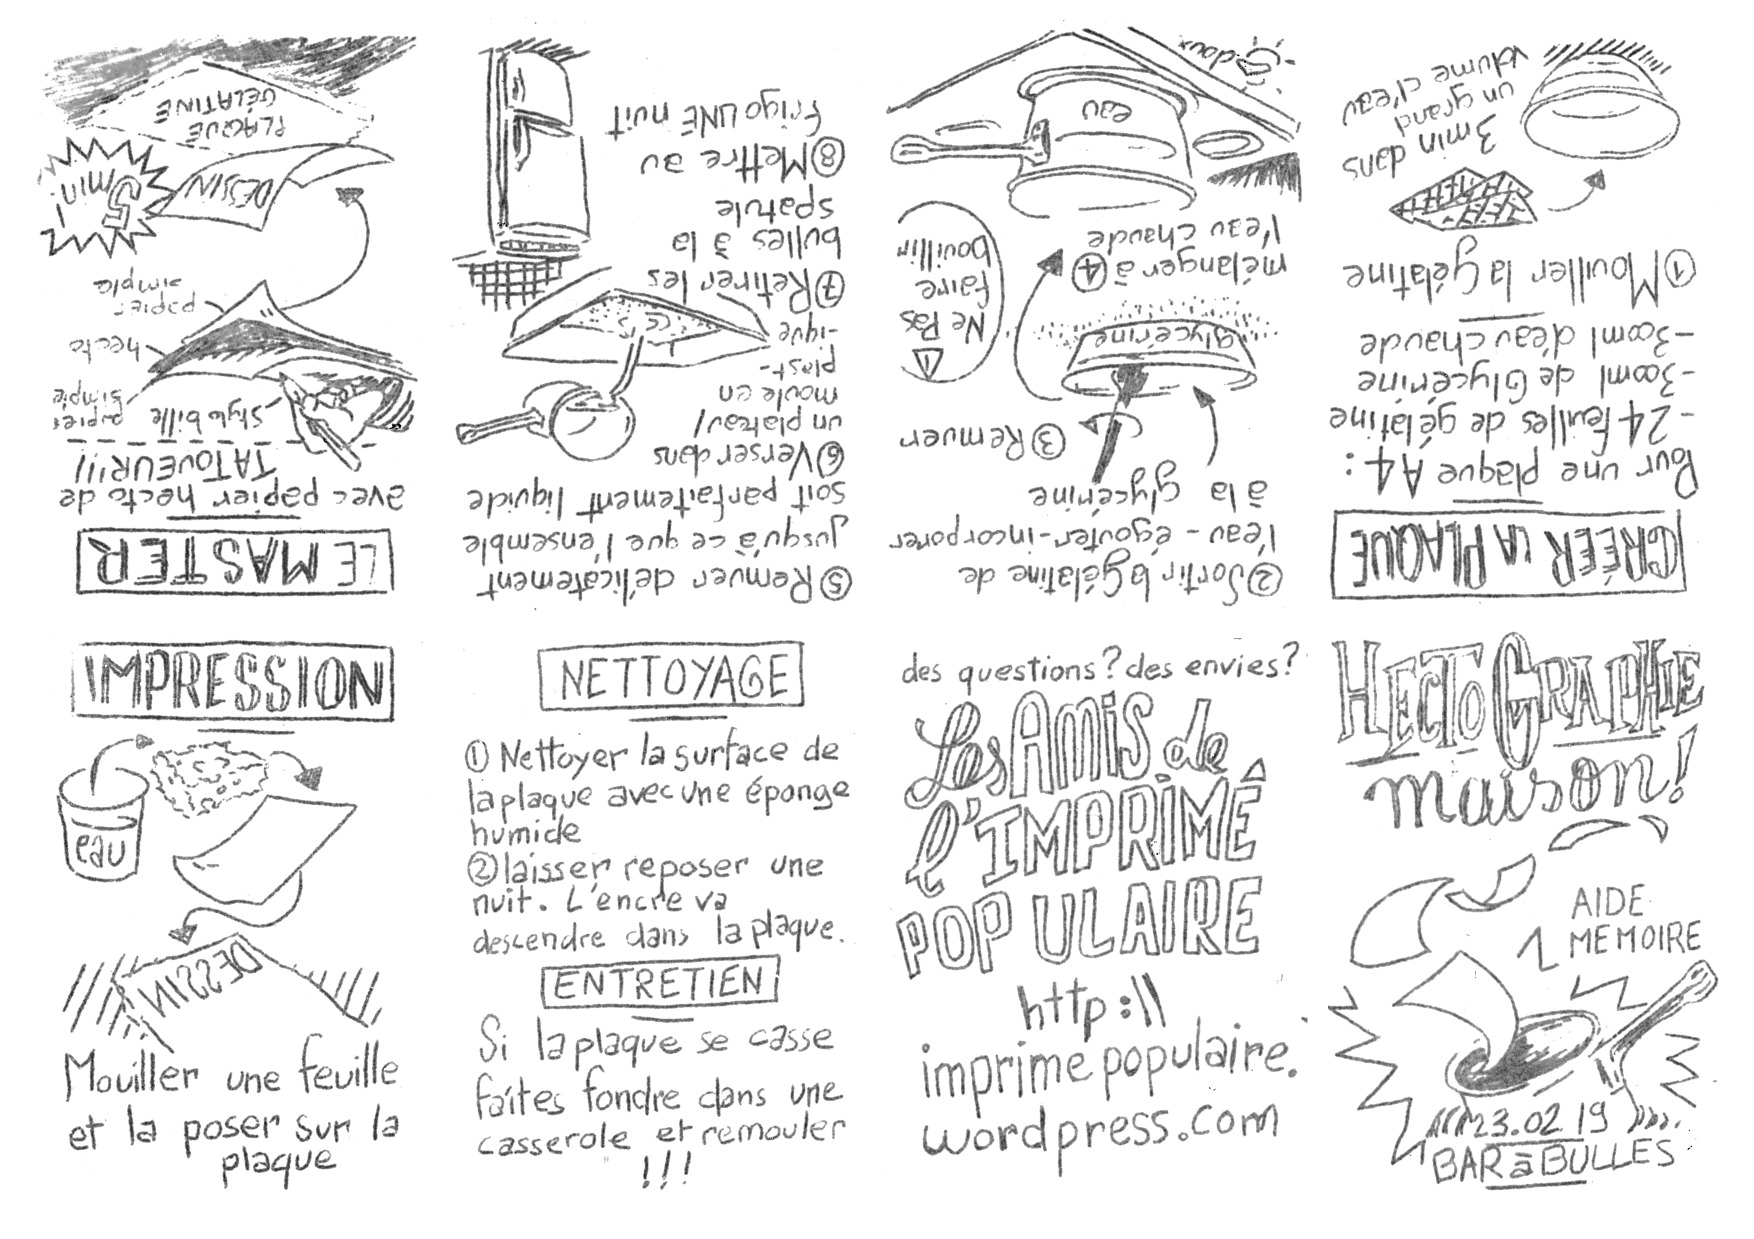 HECTOGRAPHIE
maison!
AIDE
MEMOIRE
23.02.19
BAR à BULLES
CRÉER LA PLAQUE
Pour une plaque A4 :
-24 feuilles de gélatine
-300ml de Glycérine
-300ml d'eau chaude
① Mouiller la Gélatine
3 min dans
un grand
volume d'eau
② Sortir la Gélatine de
l'eau - égouter-incorporer
à la glycérine
③ Remuer
Glycérine
! Ne Pas
faire
bouillir
mélanger à ④
l'eau chaude
eau
doux
⑤ Remuer délicatement
jusqu'à ce que l'ensemble
soit parfaitement liquide
⑥ Verser dans
un plateau/
moule en
plast-
-ique
⑦ Retirer les
bulles à la
spatule
⑧ Mettre au
frigo UNE nuit
LE MASTER
avec papier hecto de
TATOUEUR!!!
stylo bille
papier
simple
hecto
papier
simple
5 min!
DESSIN
PLAQUE
GÉLATINE
IMPRESSION
eau
DESSIN
Mouiller une feuille
et la poser sur la
plaque
NETTOYAGE
① Nettoyer la surface de
la plaque avec une éponge
humide
② laisser reposer une
nuit. L'encre va
descendre dans la plaque.
ENTRETIEN
Si la plaque se casse
faites fondre dans une
casserole et remouler
!!!
des questions? des envies?
Les AMIS de
l'IMPRIMÉ
POPULAIRE
http:\\
imprimepopulaire.
wordpress.com